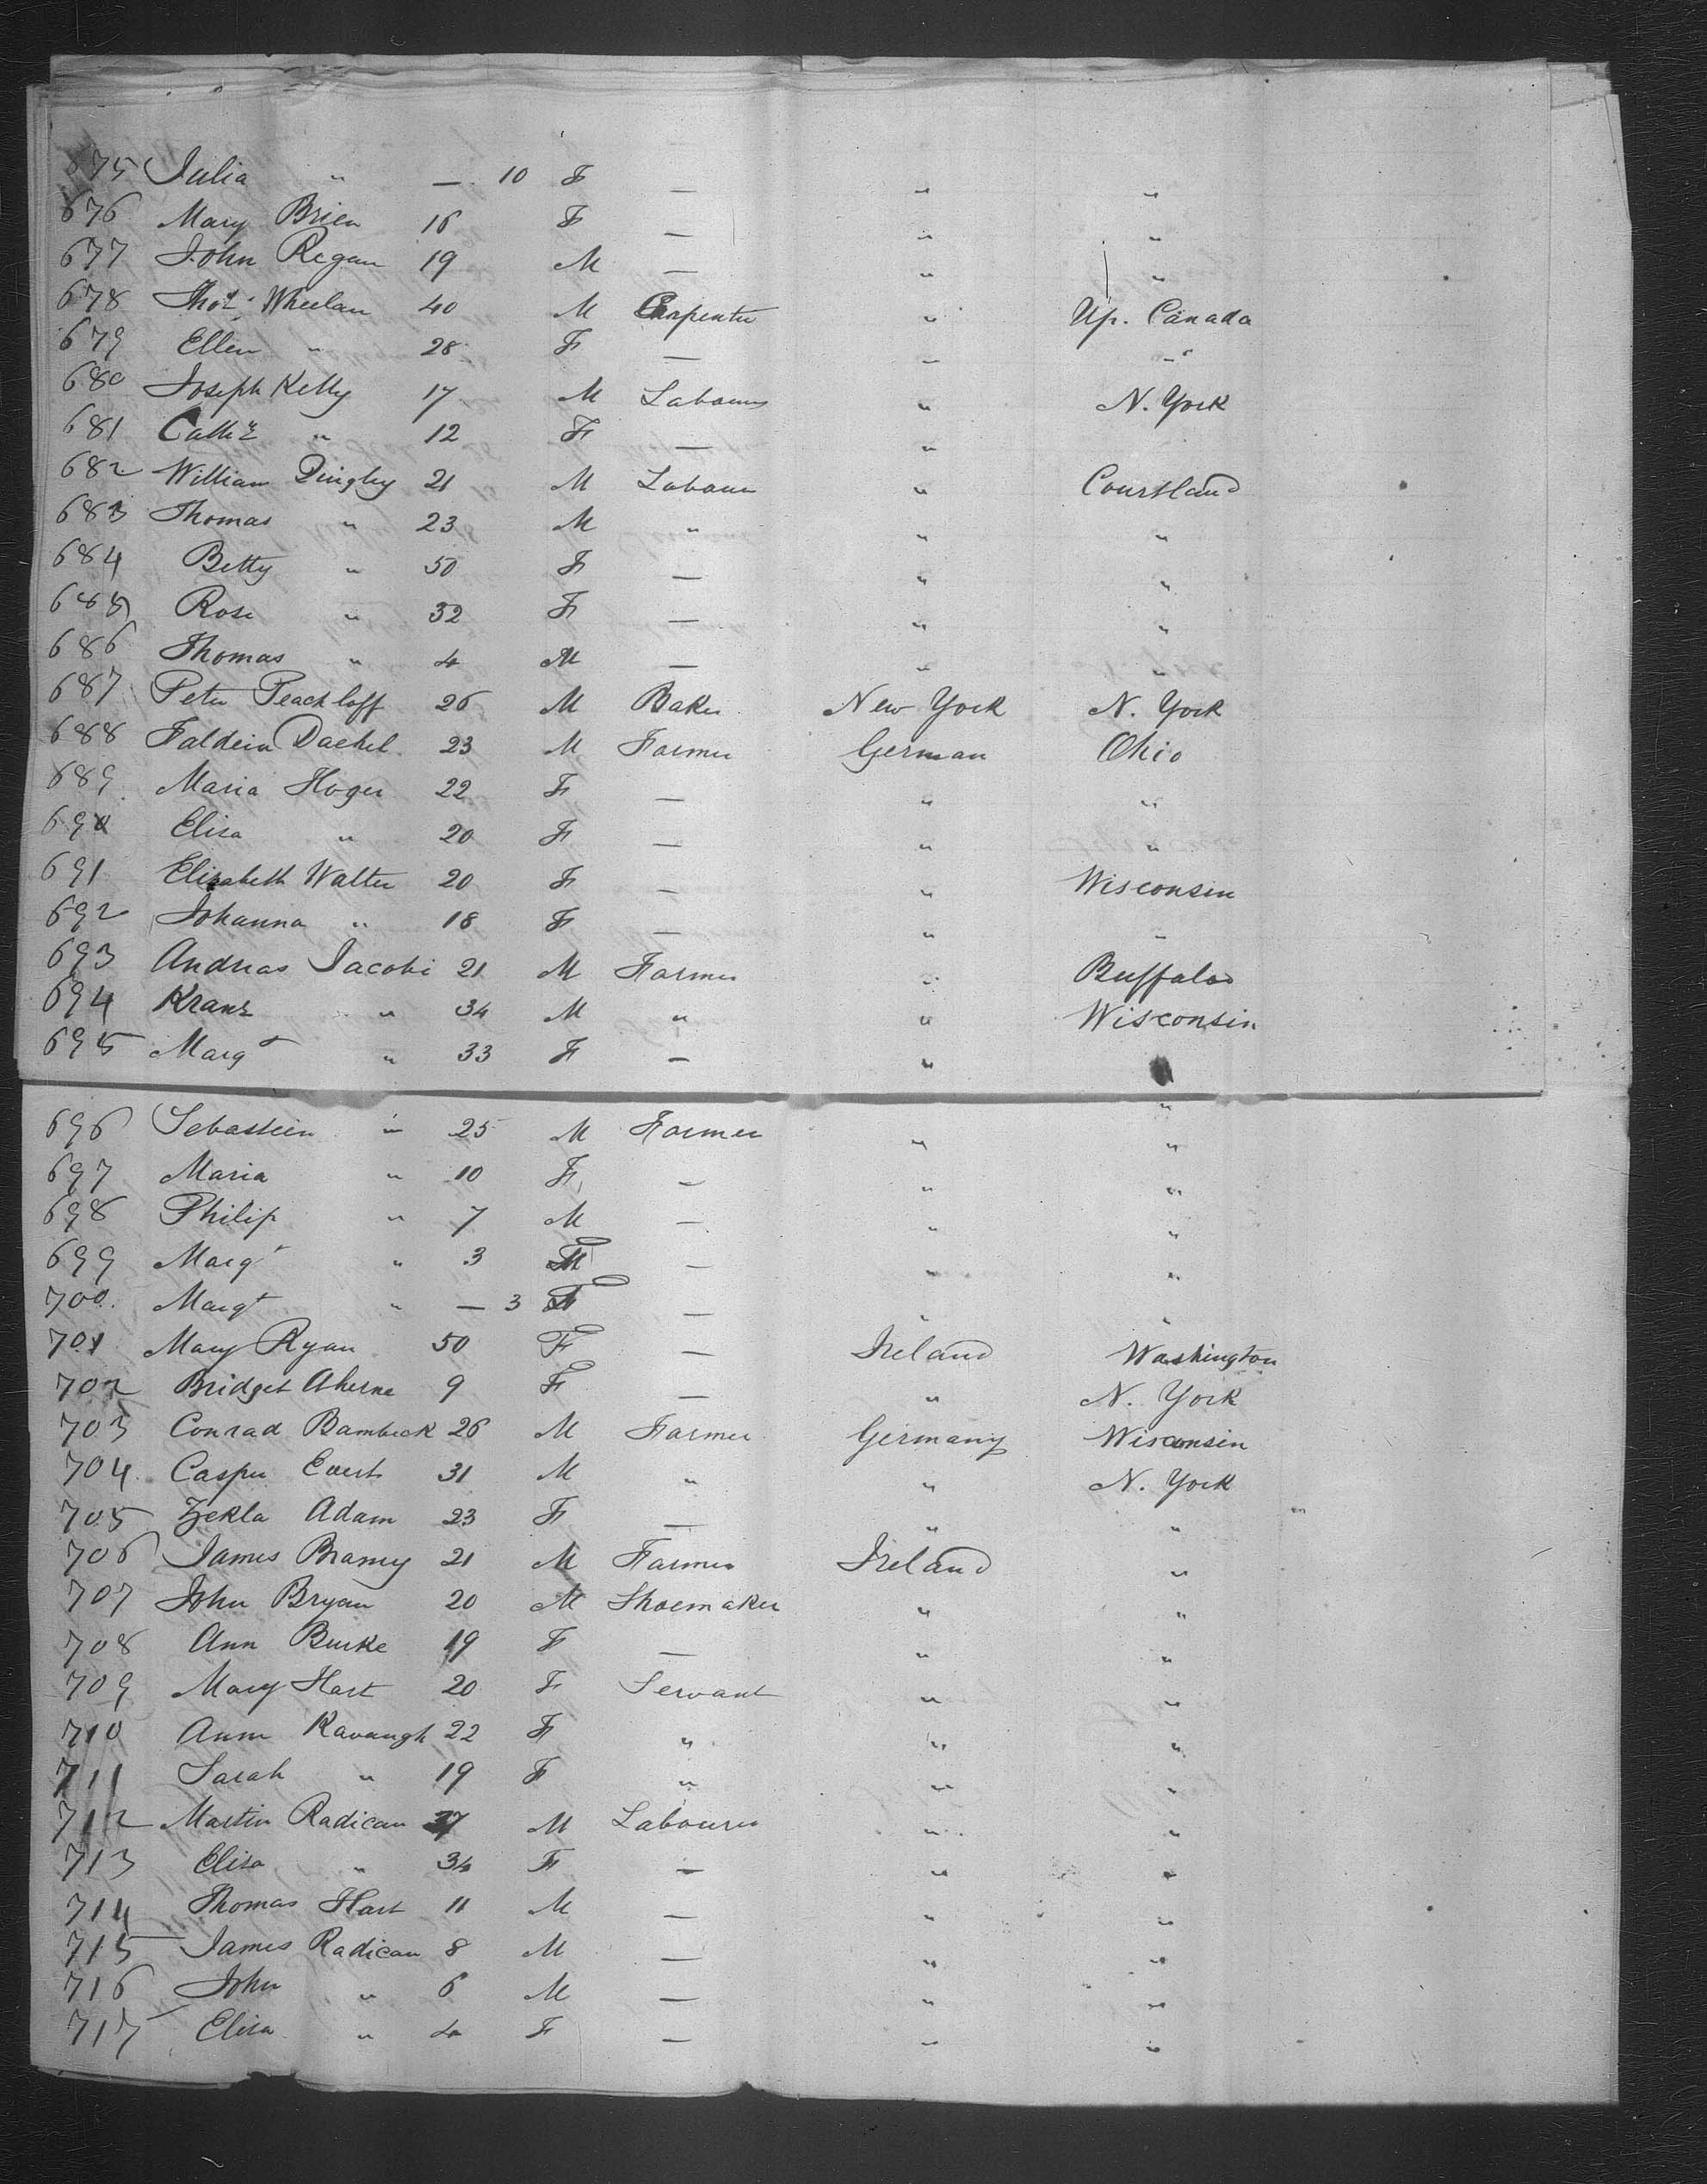 675 Julia " — 10 F — " "
676 Mary Brien 16 F — " "
677 John Regan 19 M — " "
678 Thos. Wheelan 40 M Carpenter " Up. Canada
679 Ellen " 28 F — " "
680 Joseph Kelly 17 M Labourer " N. York
681 Cathe " 12 F — "
682 William Dingley 21 M Labourer " Courtland
683 Thomas " 23 M " " "
684 Betty " 50 F — " "
685 Rose " 32 F — " "
686 Thomas " 4 M — " "
687 Peter Peachloff 26 M Baker New York N. York
688 Faldein Dachel 23 M Farmer German Ohio
689 Maria Hoger 22 F — " "
690 Elisa " 20 F — " "
691 Elizabeth Walter 20 F — " Wisconsin
692 Johanna " 18 F — " "
693 Andreas Jacobi 21 M Farmer " Buffalo
694 Kranz " 34 M " " Wisconsin
695 Margt " 33 F — " "
696 Sebastien " 25 M Farmer " "
697 Maria " 10 F — " "
698 Philip " 7 M — " "
699 Margt " 3 F — " "
700 Margt " — 3 F — " "
701 Mary Ryan 50 F — Ireland Washington
702 Bridget Aherne 9 F — " N. York
703 Conrad Bambeck 26 M Farmer Germany Wisconsin
704 Casper Evert 31 M " " N. York
705 Zekla Adam 23 F — " "
706 James Bramy 21 M Farmer Ireland "
707 John Bryan 20 M Shoemaker " "
708 Ann Burke 19 F — " "
709 Mary Hart 20 F Servant " "
710 Anne Kavaugh 22 F " " "
711 Sarah " 19 F " " "
712 Martin Radican 37 M Labourer " "
713 Elisa " 34 F — " "
714 Thomas Hart 11 M — " "
715 James Radican 8 M — " "
716 John " 6 M — " "
717 Elisa " 4 F — " "